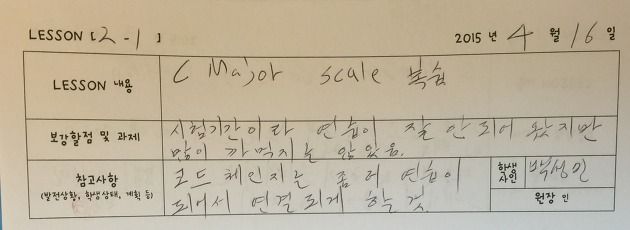 LESSON [2-1] 2015 년 4 월 16 일
LESSON 내용 C Major scale 복습
보강할점 및 과제 시험기간이라 연습이 잘 안되어 왔지만
많이 까먹지는 않았음.
참고사항 코드 체인지는 좀 더 연습이 학생 사인 박성민
(발전상황, 학생상태, 계획 등) 되어서 연결되게 할 것. 원장 인